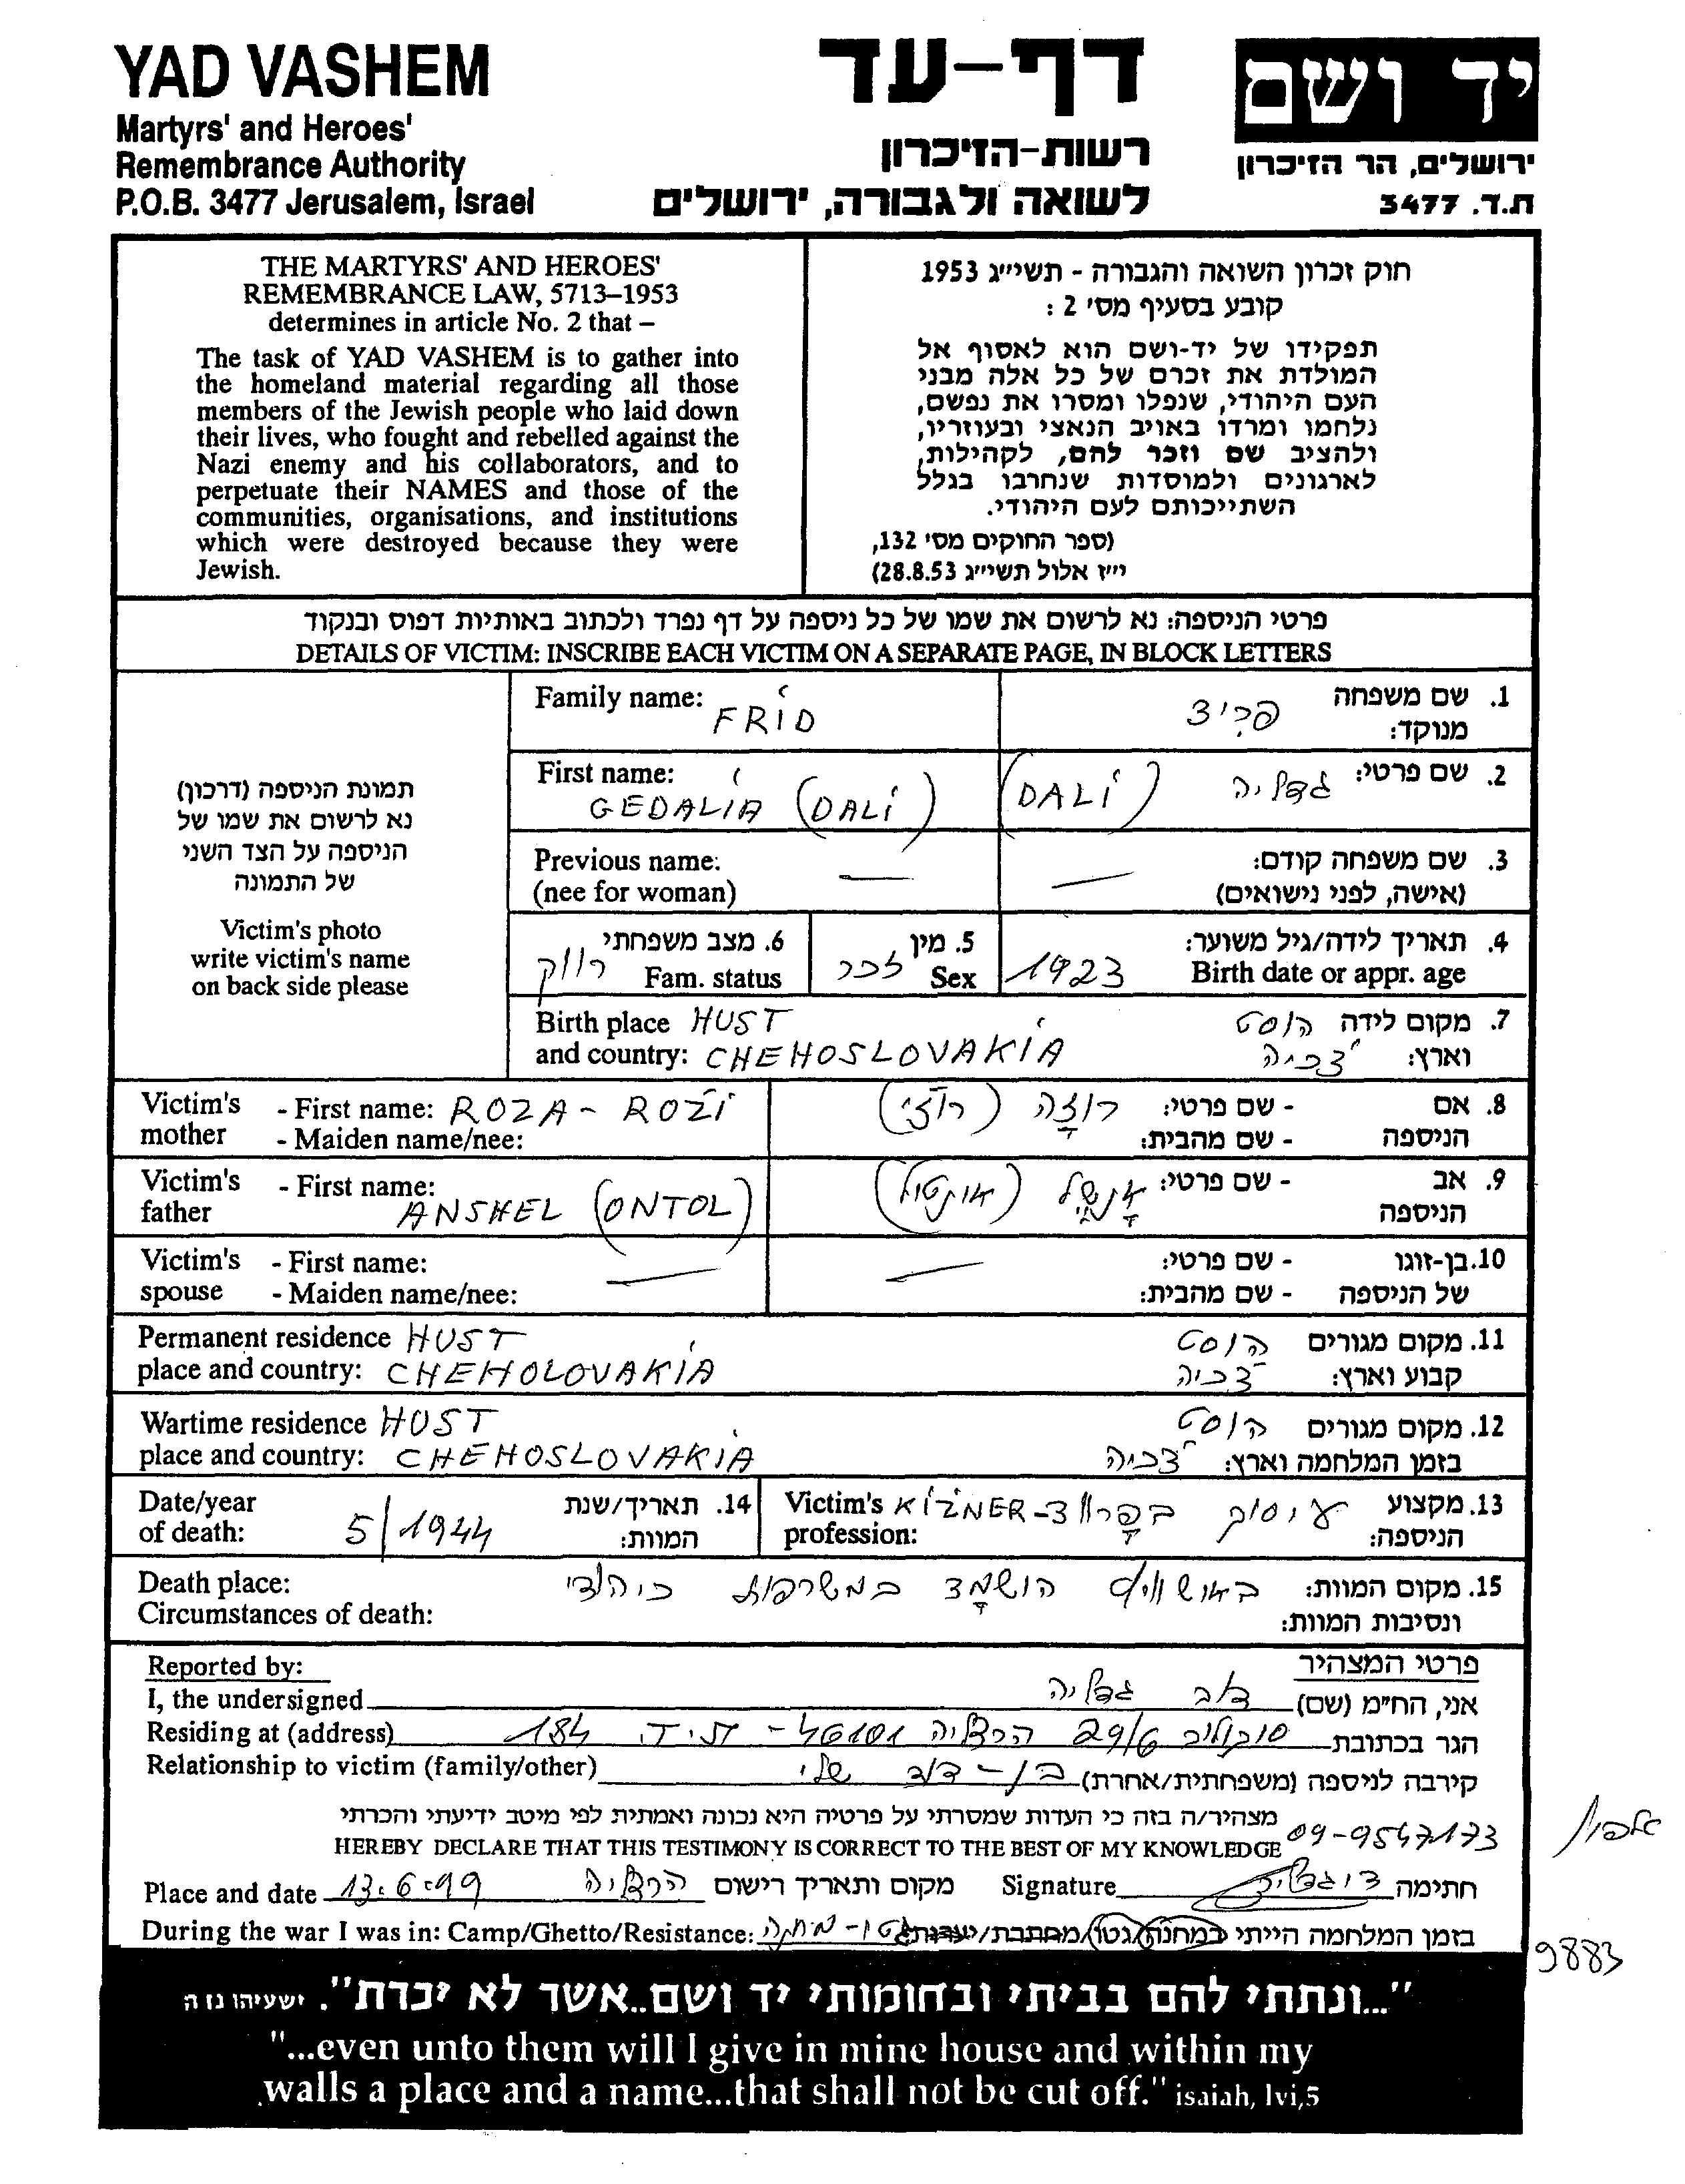 YAD VASHEM
Martyrs' and Heroes'
Remembrance Authority
P.O.B. 3477 Jerusalem, Israel
דף-עד
רשות-הזיכרון
לשואה ולגבורה, ירושלים
יד ושם
ירושלים, הר הזיכרון
ת.ד. 3477
THE MARTYRS' AND HEROES'
REMEMBRANCE LAW, 5713–1953
determines in article No. 2 that –
The task of YAD VASHEM is to gather into
the homeland material regarding all those
members of the Jewish people who laid down
their lives, who fought and rebelled against the
Nazi enemy and his collaborators, and to
perpetuate their NAMES and those of the
communities, organisations, and institutions
which were destroyed because they were
Jewish.
חוק זכרון השואה והגבורה - תשי״ג 1953
קובע בסעיף מס׳ 2 :
תפקידו של יד-ושם הוא לאסוף אל
המולדת את זכרם של כל אלה מבני
העם היהודי, שנפלו ומסרו את נפשם,
נלחמו ומרדו באויב הנאצי ובעוזריו,
ולהציב שם וזכר להם, לקהילות,
לארגונים ולמוסדות שנחרבו בגלל
השתייכותם לעם היהודי.
(ספר החוקים מס׳ 132,
י״ז אלול תשי״ג 28.8.53)
פרטי הניספה: נא לרשום את שמו של כל ניספה על דף נפרד ולכתוב באותיות דפוס ובנקוד
DETAILS OF VICTIM: INSCRIBE EACH VICTIM ON A SEPARATE PAGE, IN BLOCK LETTERS
תמונת הניספה (דרכון)
נא לרשום את שמו של
הניספה על הצד השני
של התמונה
Victim's photo
write victim's name
on back side please
Family name: FRID
1. שם משפחה מנוקד: פריד
First name: GEDALIA (DALI)
2. שם פרטי: גדליה (DALI)
Previous name: —
(nee for woman)
3. שם משפחה קודם: —
(אישה, לפני נישואים)
4. תאריך לידה/גיל משוער:
Birth date or appr. age 1923
5. מין Sex זכר
6. מצב משפחתי Fam. status רווק
Birth place HUST
and country: CHEHOSLOVAKIA
7. מקום לידה הוסט
וארץ: צ׳כיה
Victim's mother - First name: ROZA - ROZI
- Maiden name/nee:
8. אם הניספה - שם פרטי: רוזה (רוזי)
- שם מהבית:
Victim's father - First name: ANSHEL (ONTOL)
9. אב הניספה - שם פרטי: אנשל (אונטול)
Victim's spouse - First name: —
- Maiden name/nee:
10. בן-זוגו של הניספה - שם פרטי: —
- שם מהבית:
Permanent residence HUST
place and country: CHEHOLOVAKIA
11. מקום מגורים הוסט
קבוע וארץ: צ׳כיה
Wartime residence HUST
place and country: CHEHOSLOVAKIA
12. מקום מגורים הוסט
בזמן המלחמה וארץ: צ׳כיה
Date/year of death: 5/1944
14. תאריך/שנת המוות:
Victim's profession: KIZNER-
13. מקצוע הניספה: עיסוק
Death place:
Circumstances of death:
15. מקום המוות: באושוויץ הושמד במשרפות כיהודי
ונסיבות המוות:
Reported by:
פרטי המצהיר
I, the undersigned
אני, הח״מ (שם) דב גדליה
Residing at (address)
הגר בכתובת סוקולוב 29/6 הרצליה 46101 - ת.ד. 184
Relationship to victim (family/other)
קירבה לניספה (משפחתית/אחרת) בן-דוד שלי
מצהיר/ה בזה כי העדות שמסרתי על פרטיה היא נכונה ואמתית לפי מיטב ידיעתי והכרתי
HEREBY DECLARE THAT THIS TESTIMONY IS CORRECT TO THE BEST OF MY KNOWLEDGE 09-9547173
Place and date 13.6.99 הרצליה מקום ותאריך רישום
Signature חתימה
During the war I was in: Camp/Ghetto/Resistance:
בזמן המלחמה הייתי במחנה/גטו/מחתרת/יערות גטו - מחנה
9883
"...ונתתי להם בביתי ובחומותי יד ושם..אשר לא יכרת". ישעיהו נו ה
"...even unto them will I give in mine house and within my
walls a place and a name...that shall not be cut off." isaiah, lvi,5